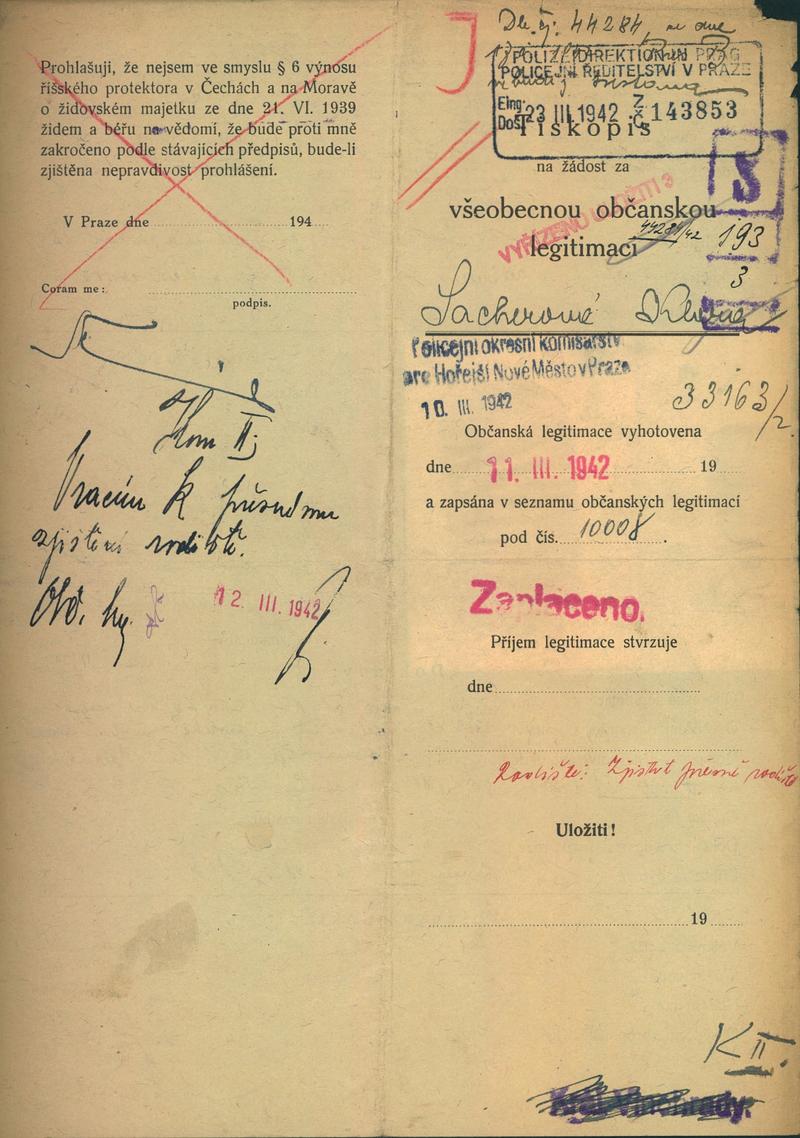 Prohlašuji, že nejsem ve smyslu § 6 výnosu
říšského protektora v Čechách a na Moravě
o židovském majetku ze dne 21. VI. 1939
židem a béřu na vědomí, že bude proti mně
zakročeno podle stávajících předpisů, bude-li
zjištěna nepravdivost prohlášení.
V Praze dne 194
Coram me:
podpis.
Kom II;
Vracím k přesnému
zjištění rodiště.
12. III. 1942
44284
POLIZEIDIREKTION IN PRAG
POLICEJNÍ ŘEDITELSTVÍ V PRAZE
Eing. Došlo 23 III 1942 Z Č 143853
Tiskopis
na žádost za
S
VYŘÍZENO ULOŽITI
všeobecnou občanskou
legitimaci
44284/42
193
3
Sacherové
Policejní okresní komisařství
pro Hořejší Nové Město v Praze
10. III. 1942
33163/2.
Občanská legitimace vyhotovena
dne 11. III. 1942 19
a zapsána v seznamu občanských legitimací
pod čís. 10008.
Zaplaceno.
Příjem legitimace stvrzuje
dne
Rodiště: Zjistit přesně rodiště
Uložiti!
19
K II.
Král. Vinohrady.